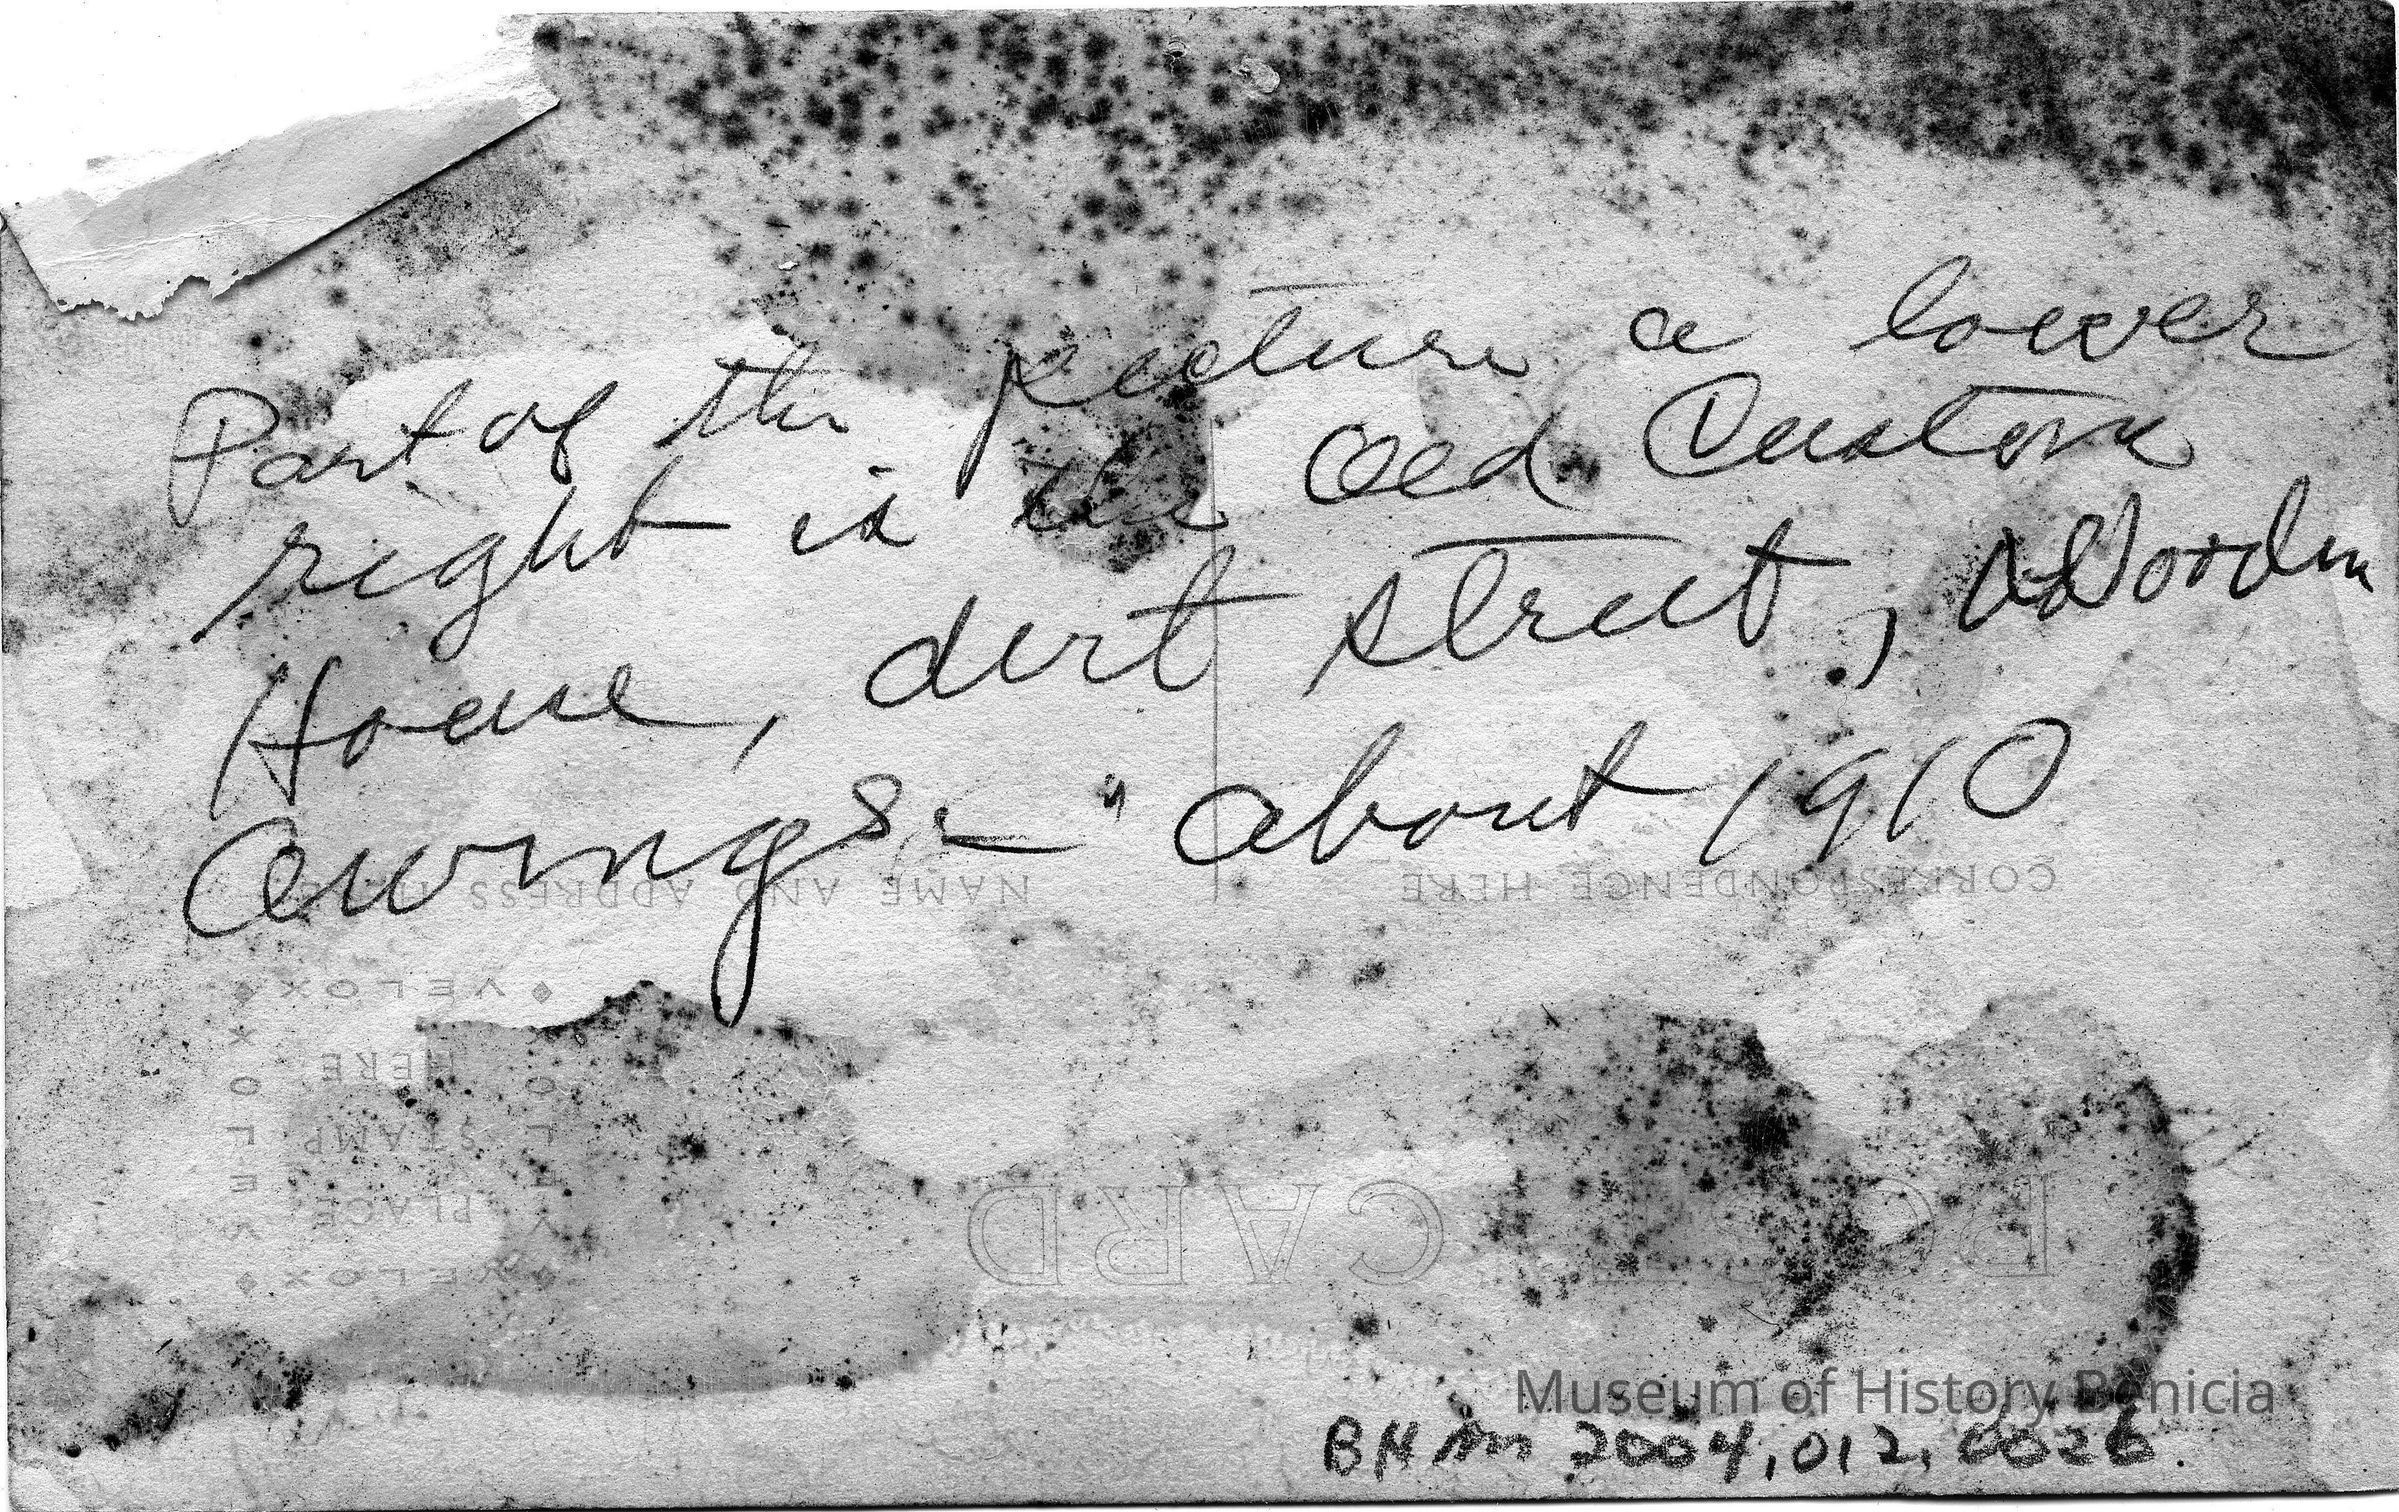 Part of the picture a lower
right is the Old Custom
House, dirt street, Wooden
awings — " about 1910
NAME AND ADDRESS HERE
CORRESPONDENCE HERE
VELOX
VELOX
VELOX
VELOX
PLACE
STAMP
HERE
POST CARD
Museum of History Benicia
BHM 2004.012.0026.